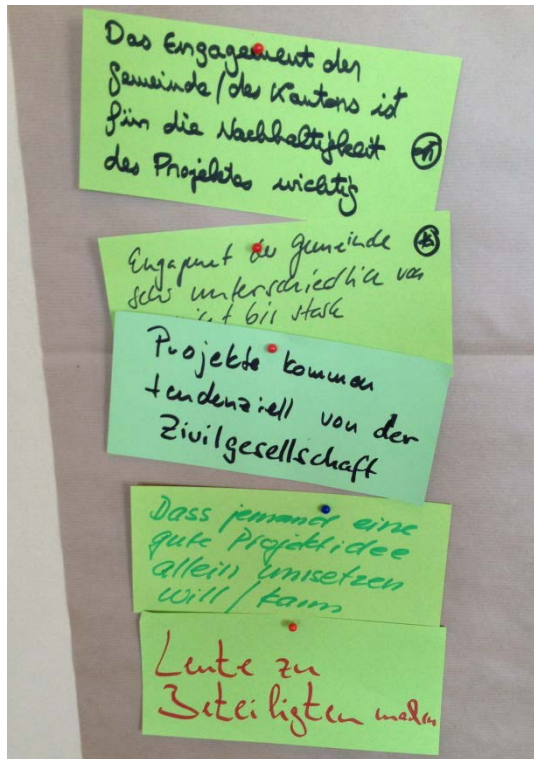 Das Engagement der
Gemeinde/des Kantons ist
für die Nachhaltigkeit
des Projektes wichtig
der Gemeinde
sehr unterschiedlich von
bis stark
Projekte kommen
tendenziell von der
Zivilgesellschaft
Dass jemand eine
gute Projektidee
allein umsetzen
will/kann
Leute zu
Beteiligten machen